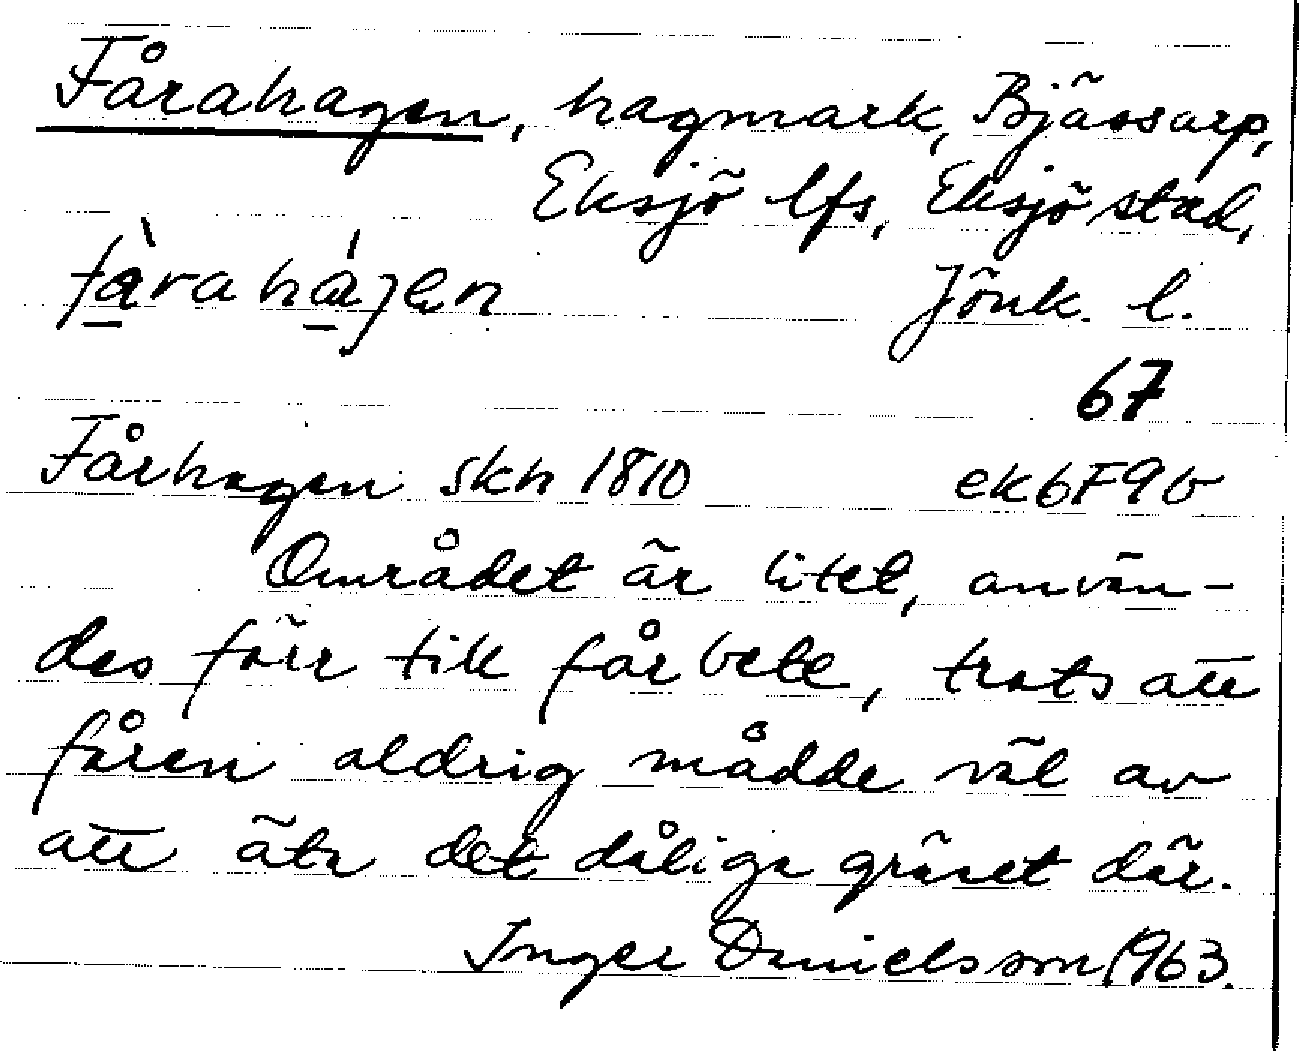 Fårahagen, hagmark, Bjässarp,
Eksjö lfs, Eksjö stad,
fàrahájen Jönk. l.
67
Fårhagen skh 1810 ek6F9b
Området är litet, använ-
des förr till fårbete, trots att
fåren aldrig mådde väl av
att äta det dåliga gräset där.
Inger Danielsson 1963.